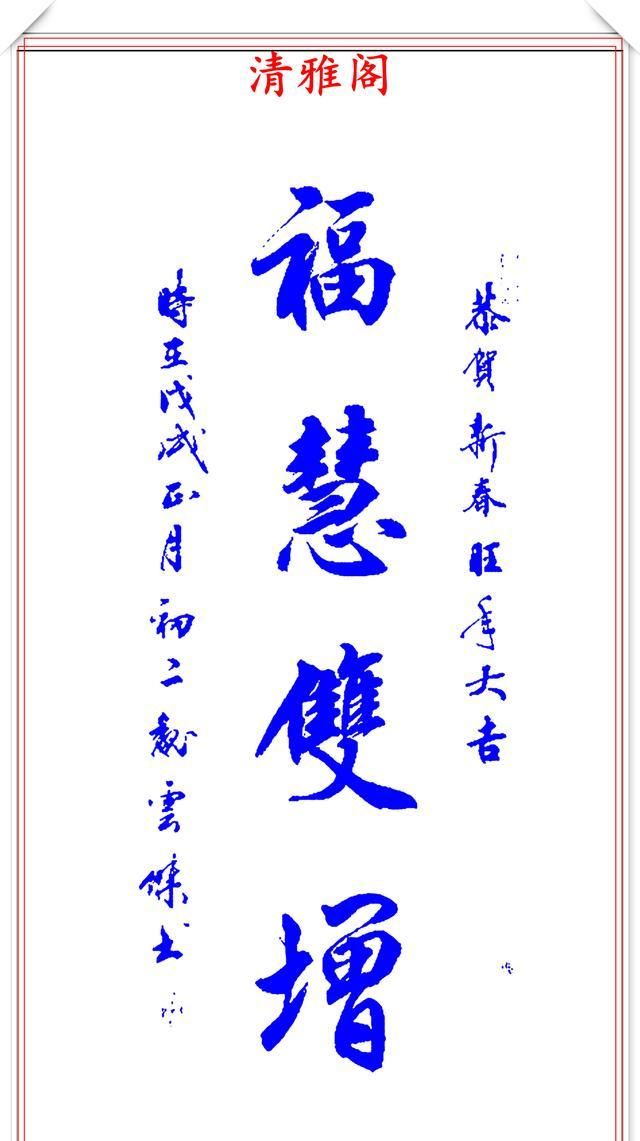 清雅阁
恭賀新春旺年大吉
福慧雙增
時在戊戌正月初二魏雲傑书